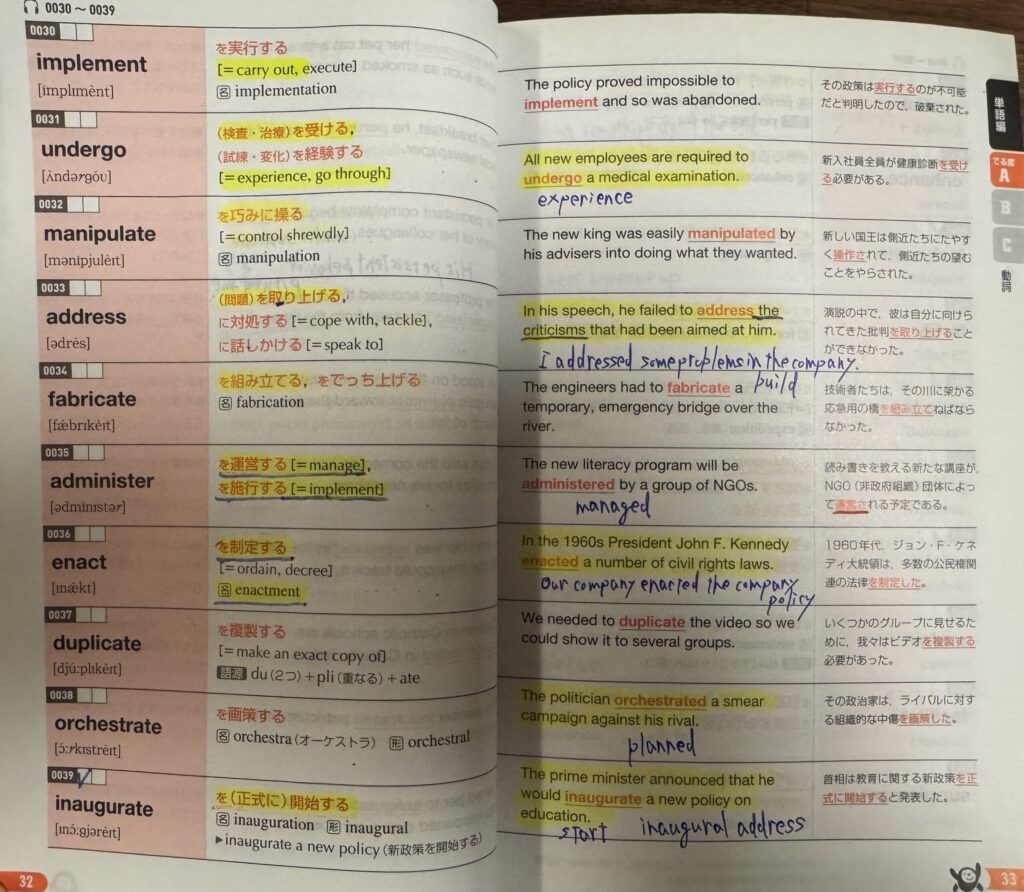 0030 ～ 0039
0030
implement
[ímplɪmènt]
を実行する
[= carry out, execute]
名 implementation
The policy proved impossible to
implement and so was abandoned.
その政策は実行するのが不可能
だと判明したので，破棄された。
0031
undergo
[ʌ̀ndərgóʊ]
(検査・治療)を受ける，
(試練・変化)を経験する
[= experience, go through]
All new employees are required to
undergo a medical examination.
experience
新入社員全員が健康診断を受け
る必要がある。
0032
manipulate
[mənípjulèɪt]
を巧みに操る
[= control shrewdly]
名 manipulation
The new king was easily manipulated by
his advisers into doing what they wanted.
新しい国王は側近たちにたやす
く操作されて，側近たちの望む
ことをやらされた。
0033
address
[ədrés]
(問題)を取り上げる，
に対処する [= cope with, tackle],
に話しかける [= speak to]
In his speech, he failed to address the
criticisms that had been aimed at him.
I addressed some problems in the company.
演説の中で，彼は自分に向けら
れてきた批判を取り上げること
ができなかった。
0034
fabricate
[fǽbrɪkèɪt]
を組み立てる，をでっち上げる
名 fabrication
The engineers had to fabricate a
build
temporary, emergency bridge over the
river.
技術者たちは，その川に架かる
応急用の橋を組み立てねばなら
なかった。
0035
administer
[ədmínɪstər]
を運営する [= manage],
を施行する [= implement]
The new literacy program will be
administered by a group of NGOs.
managed
読み書きを教える新たな講座が，
NGO (非政府組織) 団体によっ
て運営される予定である。
0036
enact
[ɪnǽkt]
を制定する
[= ordain, decree]
名 enactment
In the 1960s President John F. Kennedy
enacted a number of civil rights laws.
Our company enacted the company
policy
1960年代，ジョン・F・ケネ
ディ大統領は，多数の公民権関
連の法律を制定した。
0037
duplicate
[djúːplɪkèɪt]
を複製する
[= make an exact copy of]
語源 du (2つ) + pli (重なる) + ate
We needed to duplicate the video so we
could show it to several groups.
いくつかのグループに見せるた
めに，我々はビデオを複製する
必要があった。
0038
orchestrate
[ɔ́ːrkɪstrèɪt]
を画策する
名 orchestra (オーケストラ) 形 orchestral
The politician orchestrated a smear
campaign against his rival.
planned
その政治家は，ライバルに対す
る組織的な中傷を画策した。
0039
inaugurate
[ɪnɔ́ːgjərèɪt]
を(正式に)開始する
名 inauguration 形 inaugural
▶inaugurate a new policy (新政策を開始する)
The prime minister announced that he
would inaugurate a new policy on
education.
start inaugural address
首相は教育に関する新政策を正
式に開始すると発表した。
単語編
でる度
A
B
C
動詞
32
33